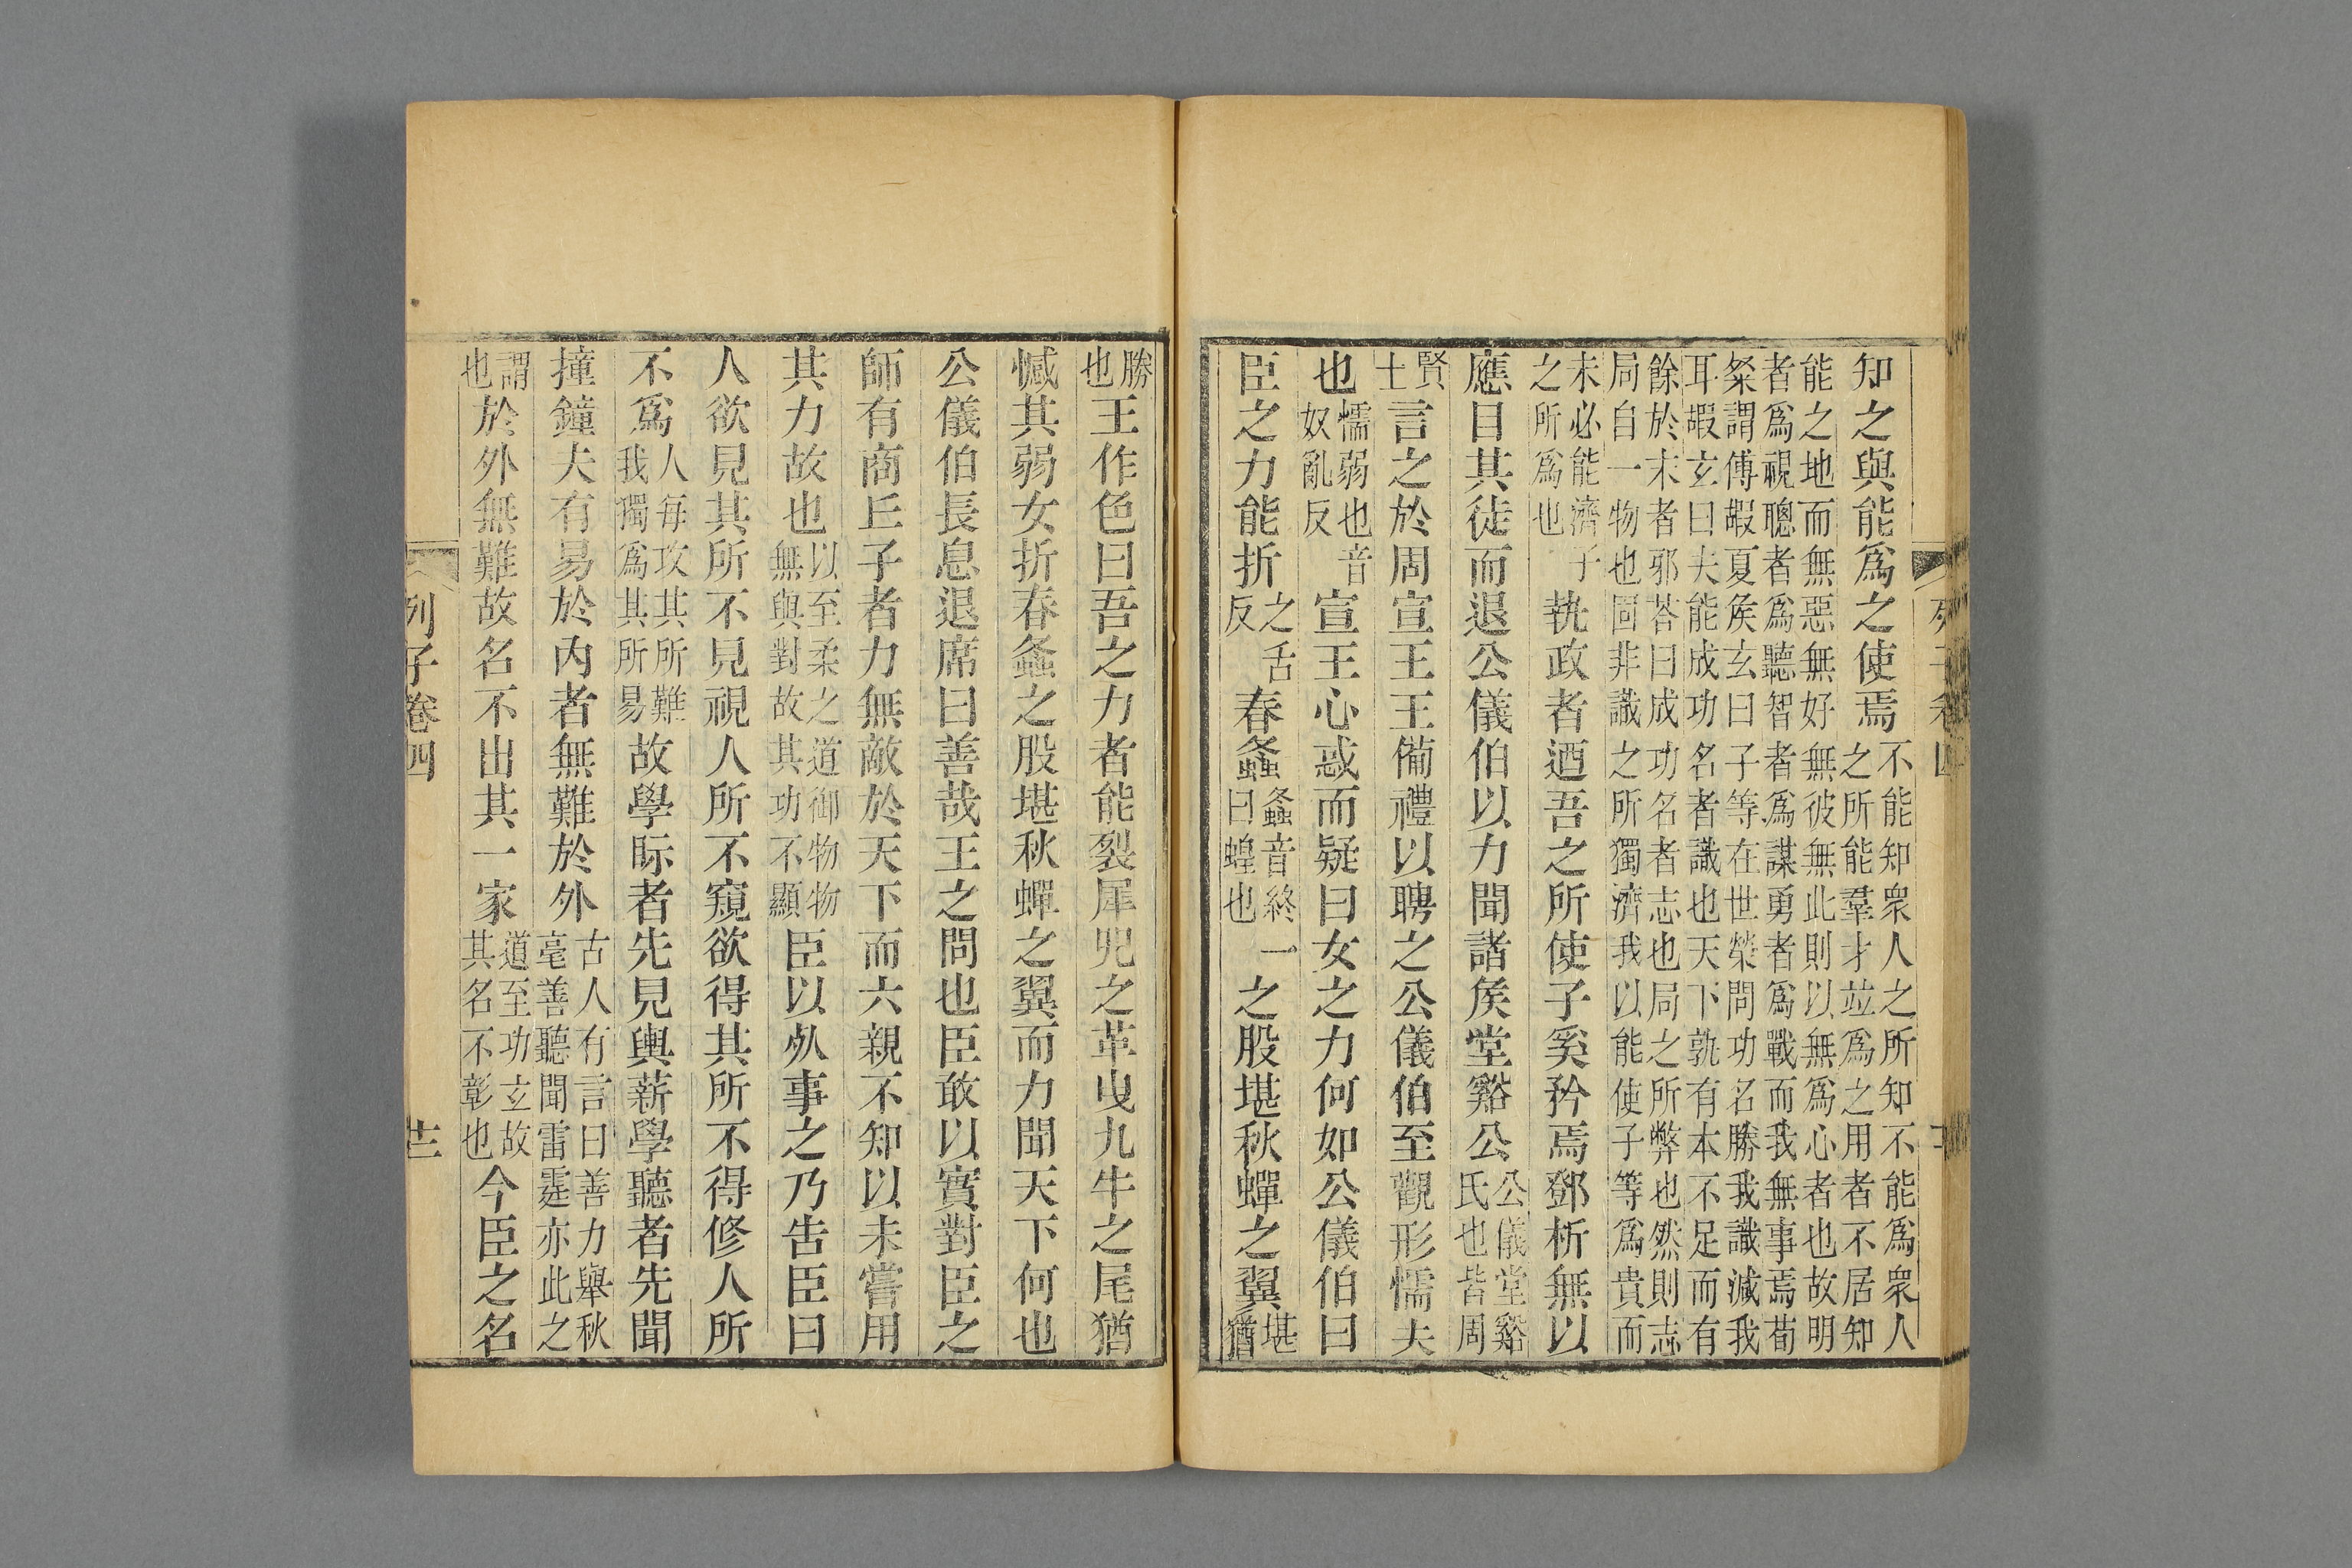 知之與能爲之使焉不能知衆人之所知不能爲衆人之所能羣才並爲之用者不居知
能之地而無惡無好無彼無此則以無爲心者也故明
者爲視聰者爲聽智者爲謀勇者爲戰而我無事焉荀
粲謂傅嘏夏矦玄曰子等在世榮問功名勝我識減我
耳嘏玄曰夫能成功名者識也天下孰有本不足而有
餘於末者邪荅曰成功名者志也局之所弊也然則志
局自一物也固非識之所獨濟我以能使子等爲貴而
未必能濟子之所爲也執政者迺吾之所使子奚矜焉鄧析無以
應目其徒而退公儀伯以力聞諸矦堂谿公公儀堂谿氏也皆周
賢士言之於周宣王王備禮以聘之公儀伯至觀形懦夫
也懦弱也音奴亂反宣王心惑而疑曰女之力何如公儀伯曰
臣之力能折之舌反春螽螽音終一曰蝗也之股堪秋蟬之翼堪猶
勝也王作色曰吾之力者能裂犀兕之革曳九牛之尾猶
憾其弱女折春螽之股堪秋蟬之翼而力聞天下何也
公儀伯長息退席曰善哉王之問也臣敢以實對臣之
師有商丘子者力無敵於天下而六親不知以未嘗用
其力故也以至柔之道御物物無與對故其功不顯臣以死事之乃告臣曰
人欲見其所不見視人所不窺欲得其所不得修人所
不爲人每攻其所難我獨爲其所易故學眎者先見輿薪學聽者先聞
撞鐘夫有易於内者無難於外古人有言曰善力舉秋毫善聽聞雷霆亦此之
謂也於外無難故名不出其一家道至功玄故其名不彰也今臣之名
列子卷四